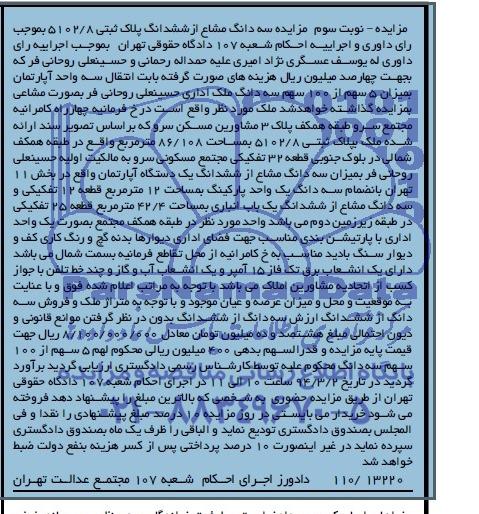 مزایده - نوبت سوم مزایده سه دانگ مشاع از ششدانگ پلاک ثبتی ۵۱۰۲/۸ بموجب
رای داوری و اجراییه احکام شعبه ۱۰۷ دادگاه حقوقی تهران بموجب اجراییه رای
داوری له یوسف عسگری نژاد امیری علیه حمداله رحمانی و حسینعلی روحانی فر که
بجهت چهارصد میلیون ریال هزینه های صورت گرفته بابت انتقال سه واحد آپارتمان
بمیزان ۵ سهم از ۱۰۰ سهم سه دانگ ملک اداری حسینعلی روحانی فر بصورت مشاعی
بمزایده گذاشته خواهدشد ملک مورد نظر واقع است در خ فرمانیه چهارراه کامرانیه
مجتمع سرو طبقه همکف پلاک ۳ مشاورین مسکن سرو که بر اساس تصویر سند ارائه
شده ملک بپلاک ثبتی ۵۱۰۲/۸ بمساحت ۸۶/۱۰۸ مترمربع واقع در طبقه همکف
شمالی در بلوک جنوبی قطعه ۳۲ تفکیکی مجتمع مسکونی سرو به مالکیت اولیه حسینعلی
روحانی فر بمیزان سه دانگ مشاع از ششدانگ یک دستگاه آپارتمان واقع در بخش ۱۱
تهران بانضمام سه دانگ یک واحد پارکینگ بمساحت ۱۲ مترمربع قطعه ۱۲ تفکیکی و
سه دانگ مشاع از ششدانگ یک باب انباری بمساحت ۴۲/۴ مترمربع قطعه ۲۵ تفکیکی
در طبقه زیرزمین دوم می باشد واحد مورد نظر در طبقه همکف مجتمع بصورت یک واحد
اداری با پارتیشن بندی مناسب جهت فضای اداری دیوارها بدنه گچ و رنگ کاری کف و
دیوار سنگ بادید مناسب به خ کامرانیه از محل تقاطع فرمانیه بسمت شمال می باشد
دارای یک انشعاب برق تک فاز ۱۵ آمپر و یک انشعاب آب و گاز و چند خط تلفن با جواز
کسب از اتحادیه مشاورین املاک می باشد با توجه به مراتب اعلام شده فوق و با عنایت
به موقعیت و محل و میزان عرصه و عیان موجود و با توجه به متراژ ملک و فروش سه
دانگ از ششدانگ ارزش سه دانگ از ششدانگ بدون در نظر گرفتن موانع قانونی و
دیون احتمالی مبلغ هشتصد و ده میلیون تومان معادل ۸/۱۰۰/۰۰۰/۰۰۰ ریال جهت
قیمت پایه مزایده و قدرالسهم بدهی ۴۰۰ میلیون ریالی محکوم لهم ۵ سهم از ۱۰۰
سهم سه دانگ محکوم علیه توسط کارشناس رسمی دادگستری ارزیابی گردید برآورد
گردید در تاریخ ۹۴/۳/۲ ساعت ۱۰ الی ۱۱ در اجرای احکام شعبه ۱۰۷ دادگاه حقوقی
تهران از طریق مزایده حضوری به شخصی که بالاترین مبلغ را پیشنهاد دهد فروخته
می شود خریدار می بایستی در روز مزایده ۱۰ درصد مبلغ پیشنهادی را نقدا و فی
المجلس بصندوق دادگستری تودیع نماید و الباقی را ظرف یک ماه بصندوق دادگستری
سپرده نماید در غیر اینصورت ۱۰ درصد پرداختی پس از کسر هزینه بنفع دولت ضبط
خواهد شد
۱۱۰/ ۱۳۲۲۰ دادورز اجرای احکام شعبه ۱۰۷ مجتمع عدالت تهران